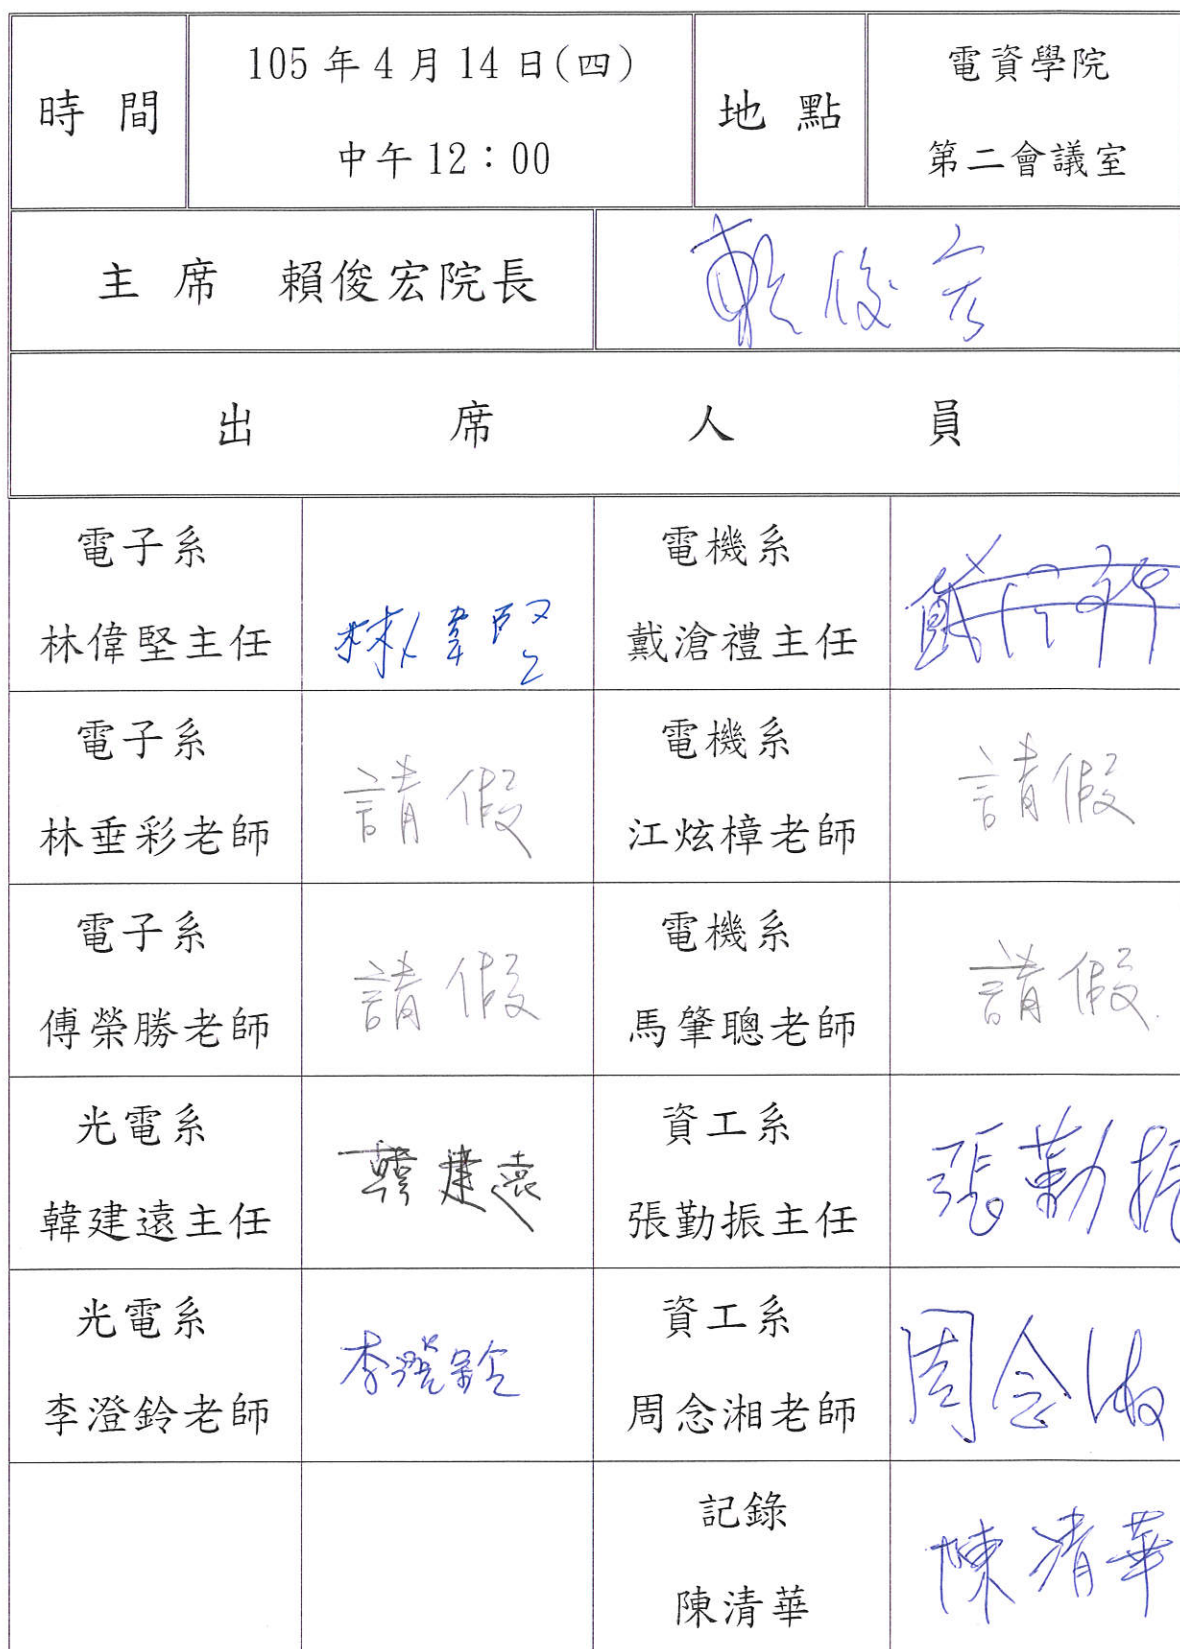 時間
105年4月14日(四)
中午12：00
地點
電資學院
第二會議室
主席 賴俊宏院長
賴俊宏
出席人員
電子系
林偉堅主任
林偉堅
電機系
戴滄禮主任
電子系
林垂彩老師
請假
電機系
江炫樟老師
請假
電子系
傅榮勝老師
請假
電機系
馬肇聰老師
請假
光電系
韓建遠主任
韓建遠
資工系
張勤振主任
張勤振
光電系
李澄鈴老師
李澄鈴
資工系
周念湘老師
周念湘
記錄
陳清華
陳清華